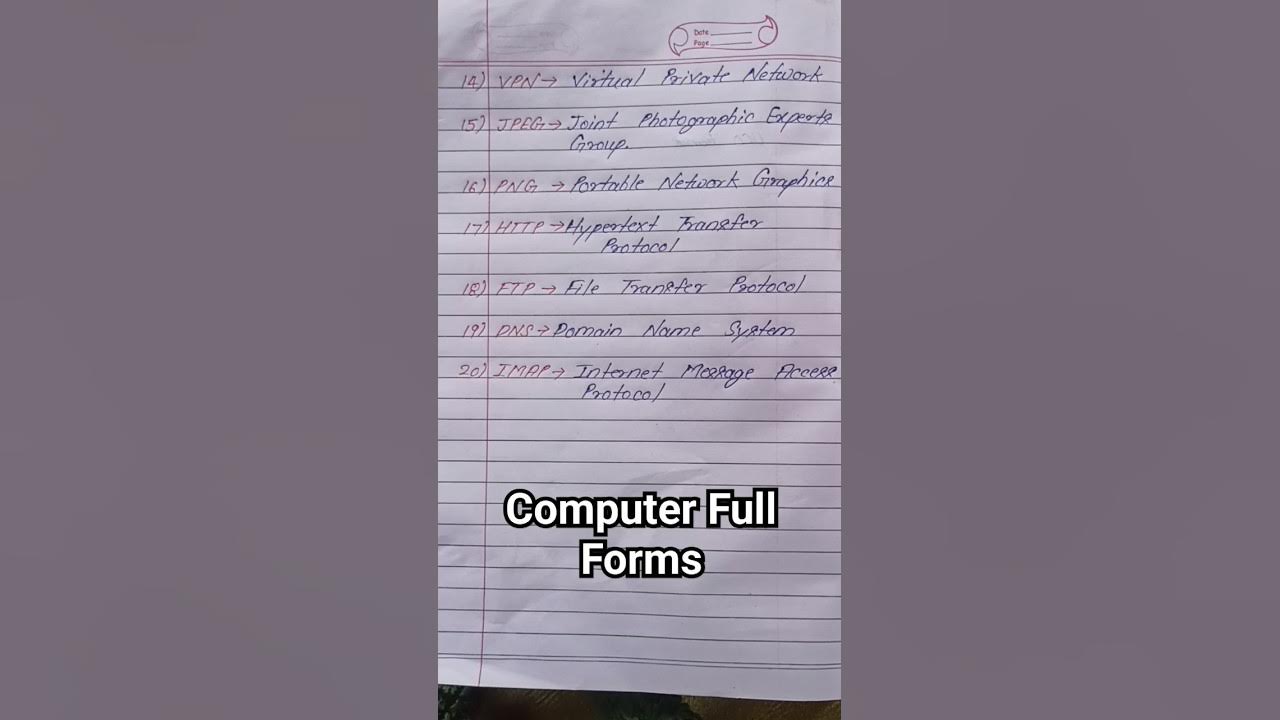 Date
Page
14) VPN → Virtual Private Network
15) JPEG → Joint Photographic Experts
Group.
16) PNG → Portable Network Graphics
17) HTTP → Hypertext Transfer
Protocol
18) FTP → File Transfer Protocol
19) DNS → Domain Name System
20) IMAP → Internet Message Access
Protocol
Computer Full
Forms